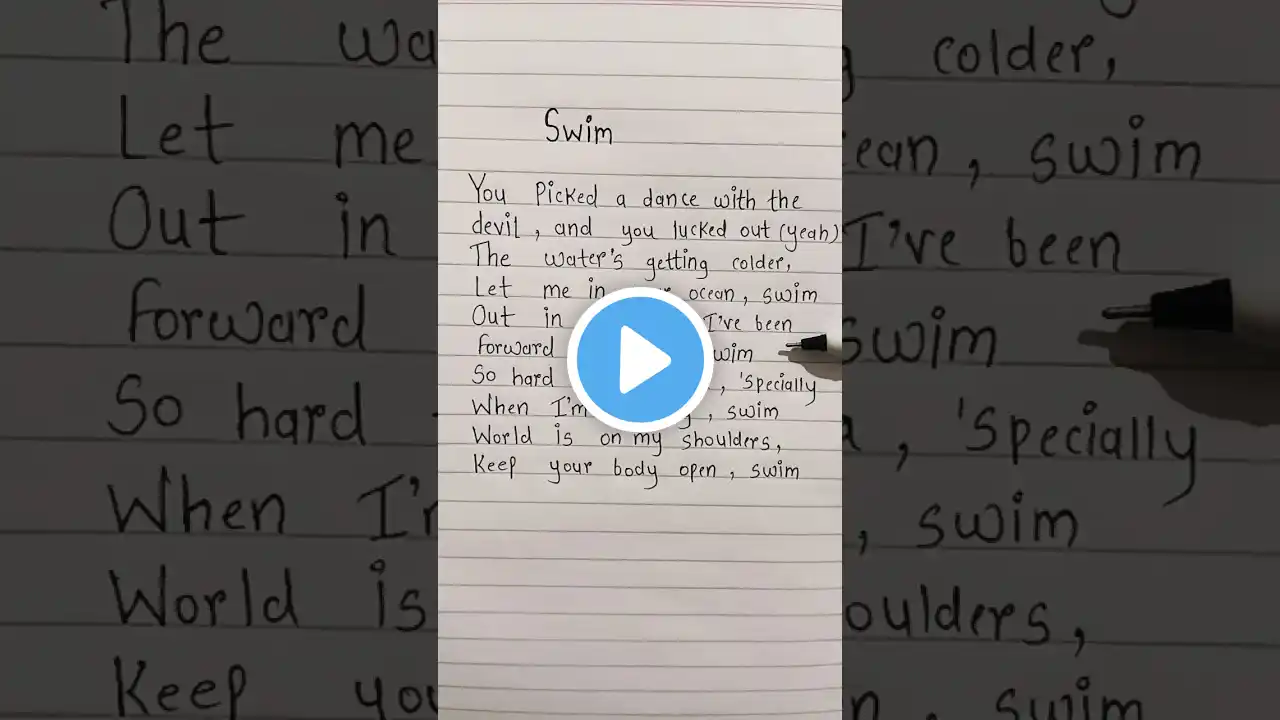 Swim
You Picked a dance with the
devil, and you lucked out (yeah)
The water's getting colder,
Let me in ocean, swim
Out in I've been
forward swim
So hard , 'Specially
When I'm , swim
World is on my shoulders,
Keep your body open, swim